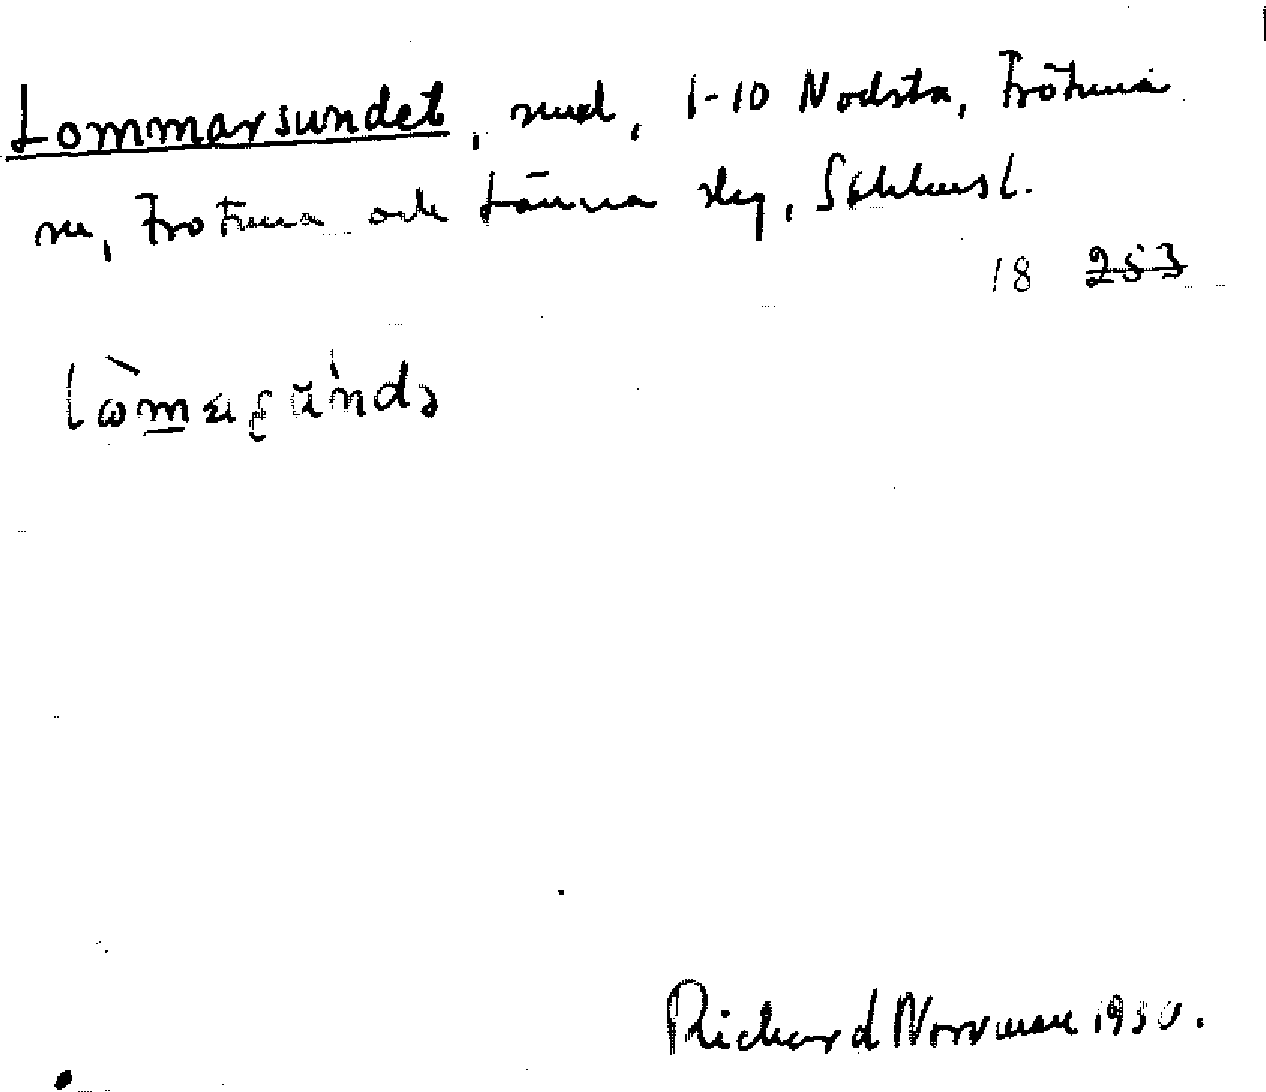 Lommarsundet, sund, 1-10 Nodsta, Frötuna
sn, Frötuna och Länna skg, Sthlms l.
18 253
Richard Norrman 1930.